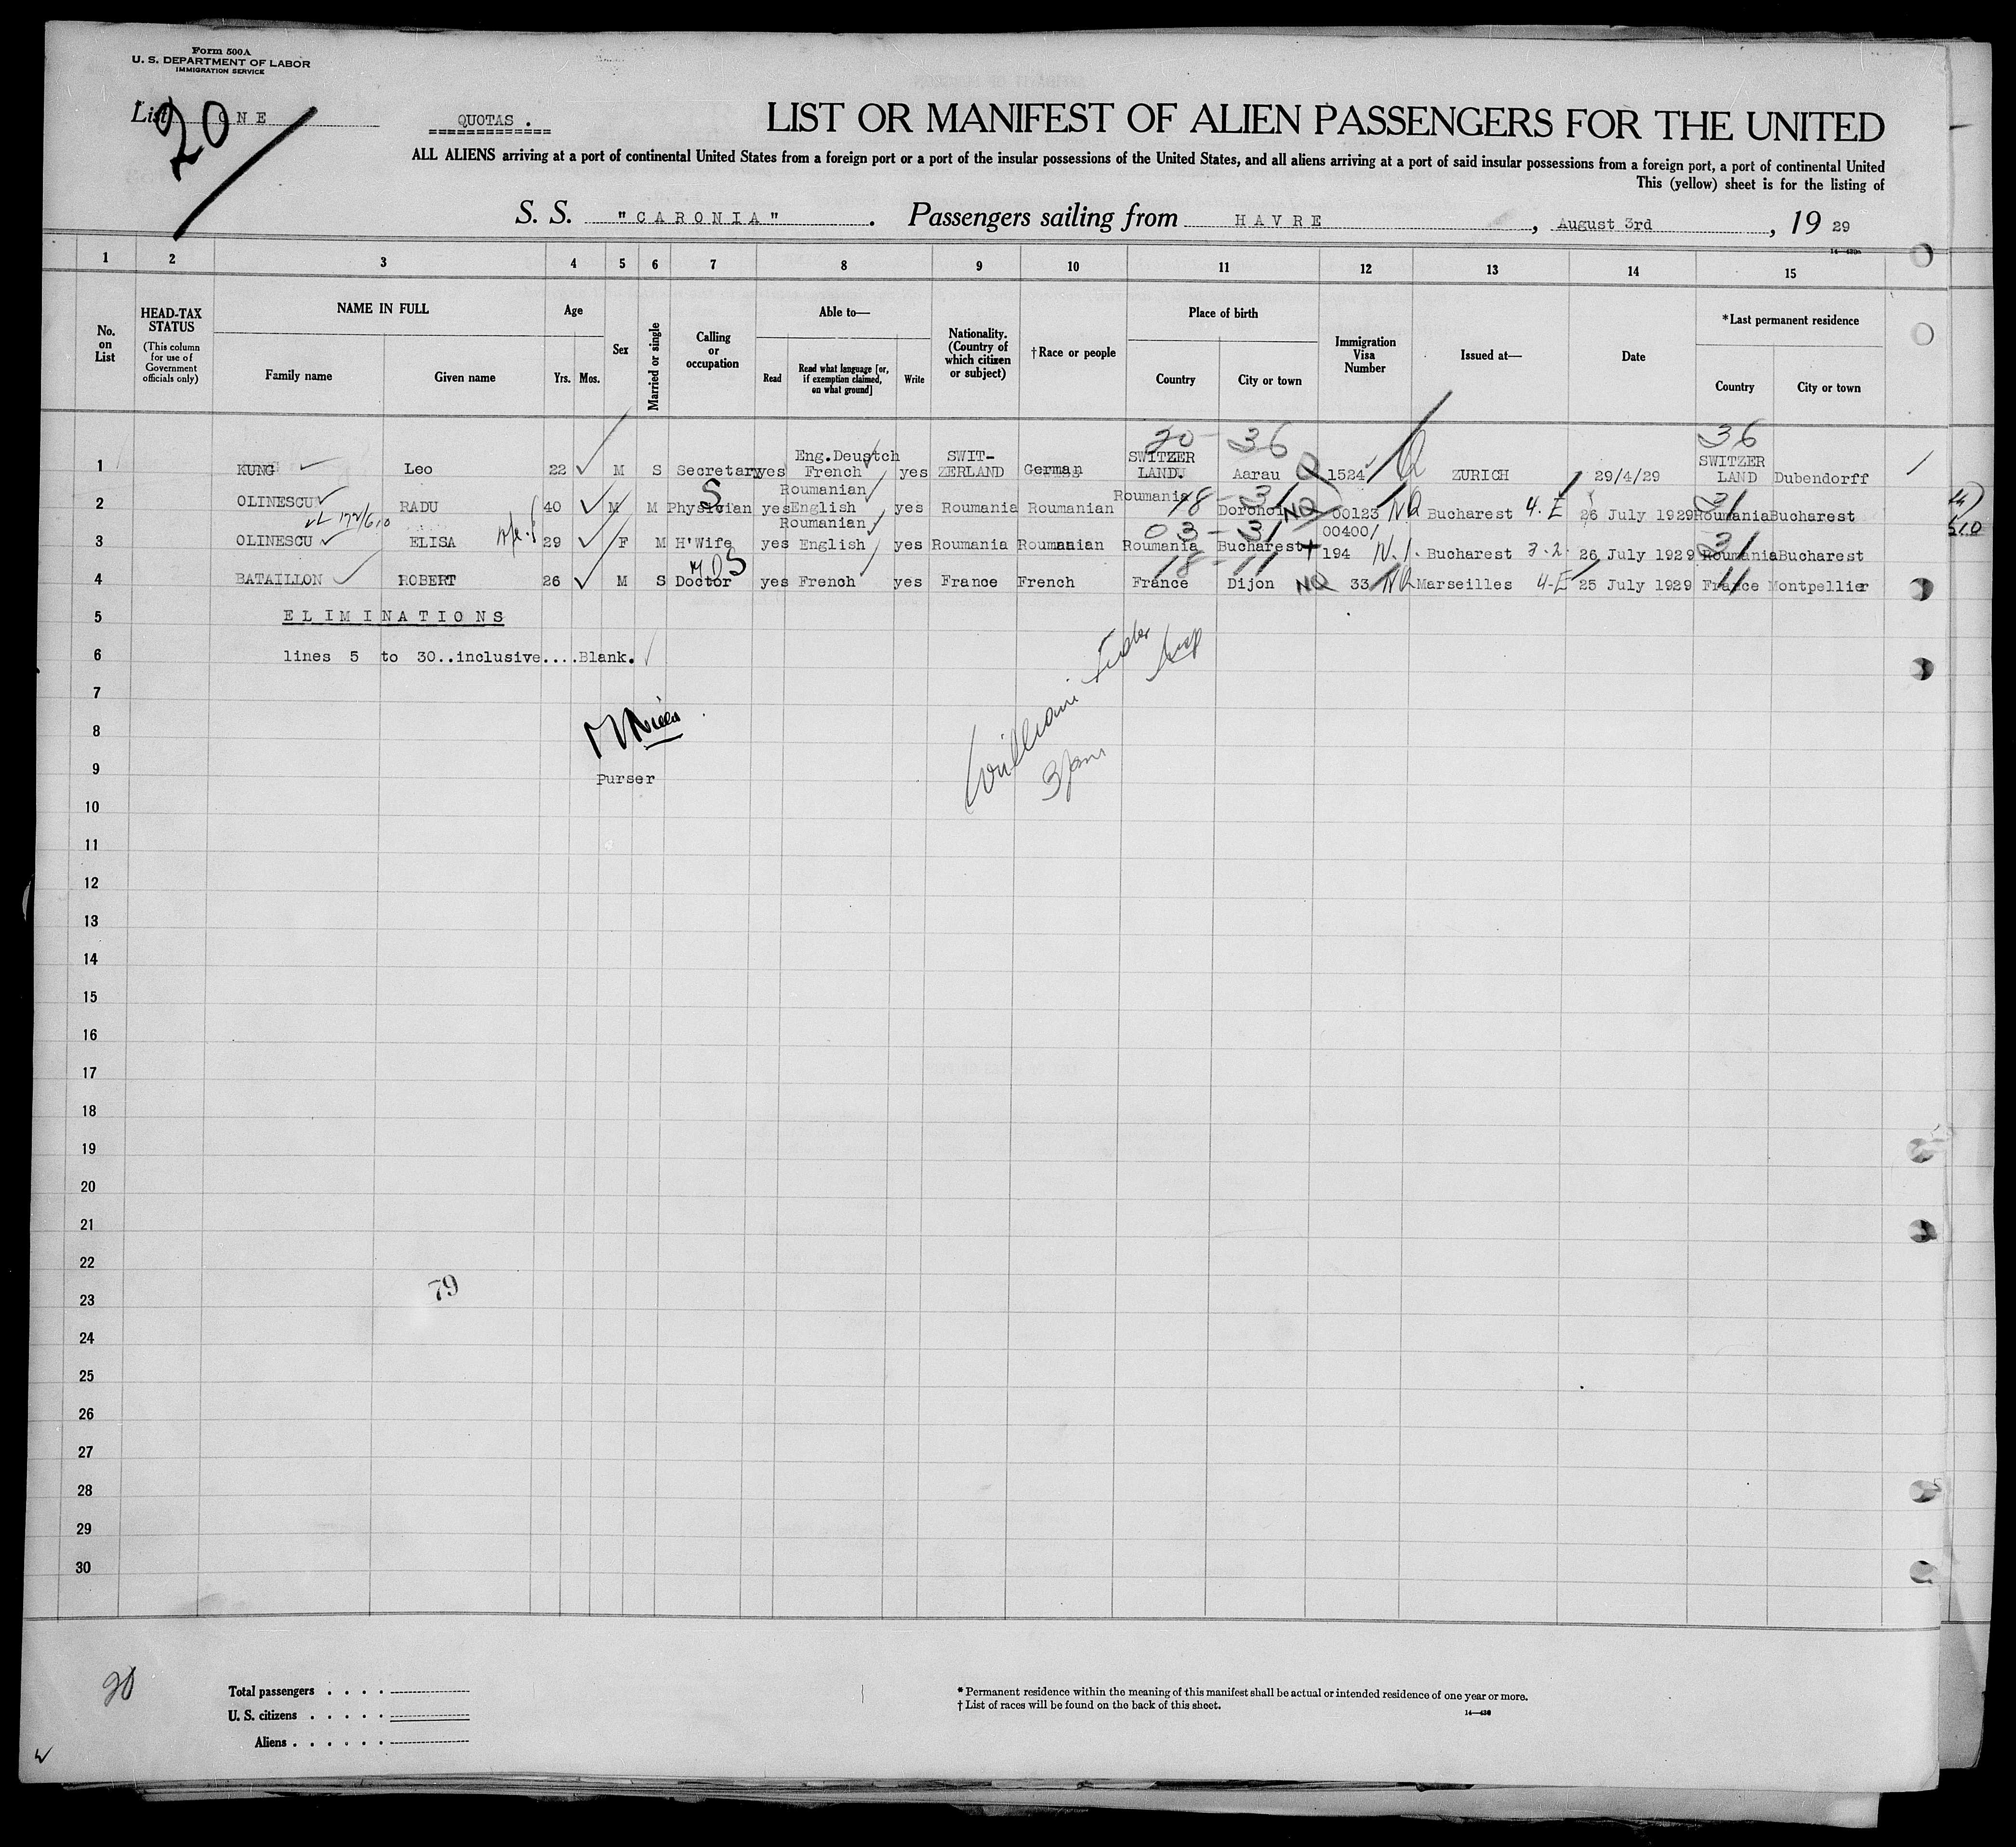 Form 500A
U. S. DEPARTMENT OF LABOR
IMMIGRATION SERVICE
List ONE
20
QUOTAS.
LIST OR MANIFEST OF ALIEN PASSENGERS FOR THE UNITED
ALL ALIENS arriving at a port of continental United States from a foreign port or a port of the insular possessions of the United States, and all aliens arriving at a port of said insular possessions from a foreign port, a port of continental United
This (yellow) sheet is for the listing of
S. S. "CARONIA". Passengers sailing from HAVRE, August 3rd, 19 29
1 2 3 4 5 6 7 8 9 10 11 12 13 14 15
No. on List
HEAD-TAX STATUS (This column for use of Government officials only)
NAME IN FULL Family name Given name
Age Yrs. Mos.
Sex
Married or single
Calling or occupation
Able to— Read Read what language [or, if exemption claimed, on what ground] Write
Nationality. (Country of which citizen or subject)
†Race or people
Place of birth Country City or town
Immigration Visa Number
Issued at—
Date
*Last permanent residence Country City or town
20 - 36 36
1 KUNG Leo 22 M S Secretary yes Eng.Deustch French yes SWIT-ZERLAND German SWITZER LAND. Aarau 1524 Q ZURICH 29/4/29 SWITZER LAND Dubendorff
2 OLINESCU RADU 40 M M Physician yes Roumanian English yes Roumania Roumanian Roumania 18 - 31 Dorohoi NQ 00123 NQ Bucharest 4. E 26 July 1929 Roumania 31 Bucharest
3 OLINESCU ELISA 29 F M H'Wife yes Roumanian English yes Roumania Roumanian Roumania 03 - 31 Bucharest 00400/194 N.I. Bucharest 3-2 26 July 1929 Roumania 31 Bucharest
4 BATAILLON ROBERT 26 M S Doctor yes French yes France French France 18 - 11 Dijon NQ 33 NQ Marseilles 4-E 25 July 1929 France 11 Montpellier
5 ELIMINATIONS
6 lines 5 to 30..inclusive....Blank.
7
8
9 Purser
10
11
12
13
14
15
16
17
18
19
20
21
22
79
23
24
25
26
27
28
29
30
20
Total passengers . . . .
U. S. citizens . . . . .
Aliens . . . . . .
* Permanent residence within the meaning of this manifest shall be actual or intended residence of one year or more.
† List of races will be found on the back of this sheet.
14—430